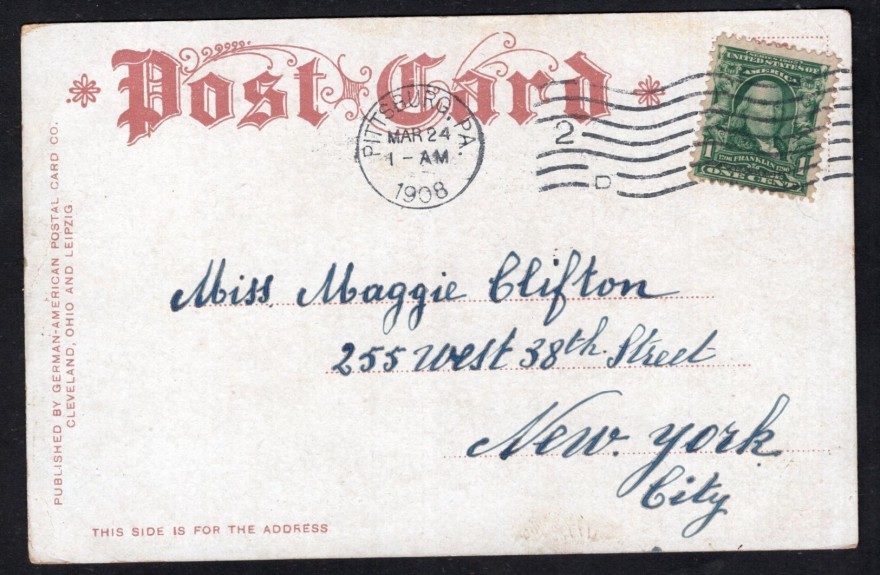 Post Card
PITTSBURG, PA.
MAR 24
1 - AM
1908
2
D
UNITED STATES OF
AMERICA
1 FRANKLIN 1
ONE CENT
Miss. Maggie Clifton
255 West 38th. Street
New. York
City
PUBLISHED BY GERMAN-AMERICAN POSTAL CARD CO.
CLEVELAND, OHIO AND LEIPZIG
THIS SIDE IS FOR THE ADDRESS